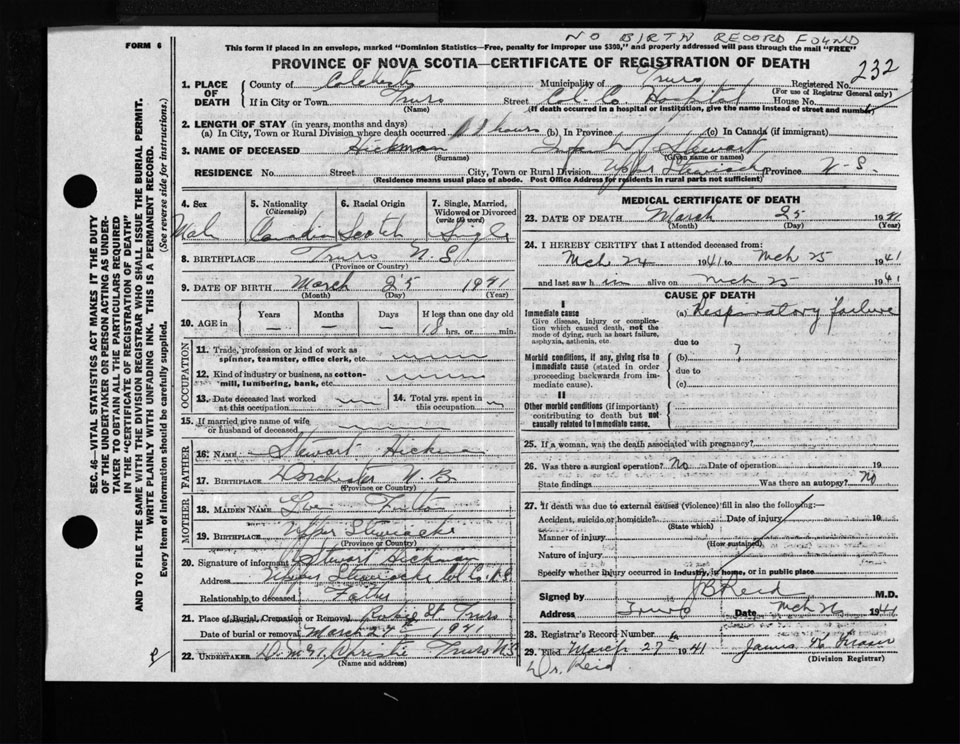 NO BIRTH RECORD FOUND
FORM 6
This form if placed in an envelope, marked "Dominion Statistics—Free, penalty for improper use $300," and properly addressed will pass through the mail "FREE"
PROVINCE OF NOVA SCOTIA—CERTIFICATE OF REGISTRATION OF DEATH
232
1. PLACE OF DEATH County of Colchester Municipality of Truro Registered No.
(For use of Registrar General only)
If in City or Town Truro Street Col. Co. Hospital House No.
(Name) (If death occurred in a hospital or institution, give the name instead of street and number)
2. LENGTH OF STAY (in years, months and days)
(a) In City, Town or Rural Division where death occurred 18 hours (b) In Province (c) In Canada (if immigrant)
3. NAME OF DECEASED Hickman Infant of Stewart
(Surname) (Given name or names)
RESIDENCE No. Street City, Town or Rural Division Upper Stewiacke Province N.S.
(Residence means usual place of abode. Post Office Address for residents in rural parts not sufficient)
4. Sex 5. Nationality 6. Racial Origin 7. Single, Married,
(Citizenship) Widowed or Divorced
(write the word)
Male Canadian Scotch Single
8. BIRTHPLACE Truro N.S.
(Province or Country)
9. DATE OF BIRTH March 25 1941
(Month) (Day) (Year)
10. AGE in Years Months Days If less than one day old
— — — 18 hrs. or min.
OCCUPATION
11. Trade, profession or kind of work as
spinner, teamster, office clerk, etc.
12. Kind of industry or business, as cotton-
mill, lumbering, bank, etc.
13. Date deceased last worked at this occupation
14. Total yrs. spent in this occupation
15. If married give name of wife
or husband of deceased
FATHER
16. NAME Stewart Hickman
17. BIRTHPLACE Dorchester N.B.
(Province or Country)
MOTHER
18. MAIDEN NAME
19. BIRTHPLACE Upper Stewiacke
(Province or Country)
20. Signature of informant Stewart Hickman
Address Upper Stewiacke Col. Co. N.S.
Relationship to deceased Father
21. Place of Burial, Cremation or Removal Robie St Truro
Date of burial or removal March 27th 1941
22. UNDERTAKER Christie Truro N.S.
(Name and address)
MEDICAL CERTIFICATE OF DEATH
23. DATE OF DEATH March 25 1941
(Month) (Day) (Year)
24. I HEREBY CERTIFY that I attended deceased from:
Mch 24 1941 to Mch 25 1941
and last saw him alive on Mch 25 1941
CAUSE OF DEATH
I
Immediate cause
Give disease, injury or complica-
tion which caused death, not the
mode of dying, such as heart failure,
asphyxia, asthenia, etc.
(a) Respiratory failure
due to
Morbid conditions, if any, giving rise to
immediate cause (stated in order
proceeding backwards from im-
mediate cause).
(b) ?
due to
(c)
II
Other morbid conditions (if important)
contributing to death but not
causally related to immediate cause.
25. If a woman, was the death associated with pregnancy?
26. Was there a surgical operation? No Date of operation 19
State findings Was there an autopsy? No
27. If death was due to external causes (violence) fill in also the following:—
Accident, suicide or homicide? Date of injury 19
(State which)
Manner of injury
(How sustained)
Nature of injury
Specify whether injury occurred in industry, in home, or in public place
Signed by J B Reid M.D.
Address Truro Date Mch 26 1941
28. Registrar's Record Number
29. Filed March 27 1941 James
(Division Registrar)
Dr. Reid
SEC. 46—VITAL STATISTICS ACT MAKES IT THE DUTY
OF THE UNDERTAKER OR PERSON ACTING AS UNDER-
TAKER TO OBTAIN ALL THE PARTICULARS REQUIRED
IN THE "CERTIFICATE OF REGISTRATION OF DEATH"
AND TO FILE THE SAME WITH THE DIVISION REGISTRAR WHO SHALL ISSUE THE BURIAL PERMIT.
WRITE PLAINLY WITH UNFADING INK. THIS IS A PERMANENT RECORD.
Every item of information should be carefully supplied. (See reverse side for instructions.)